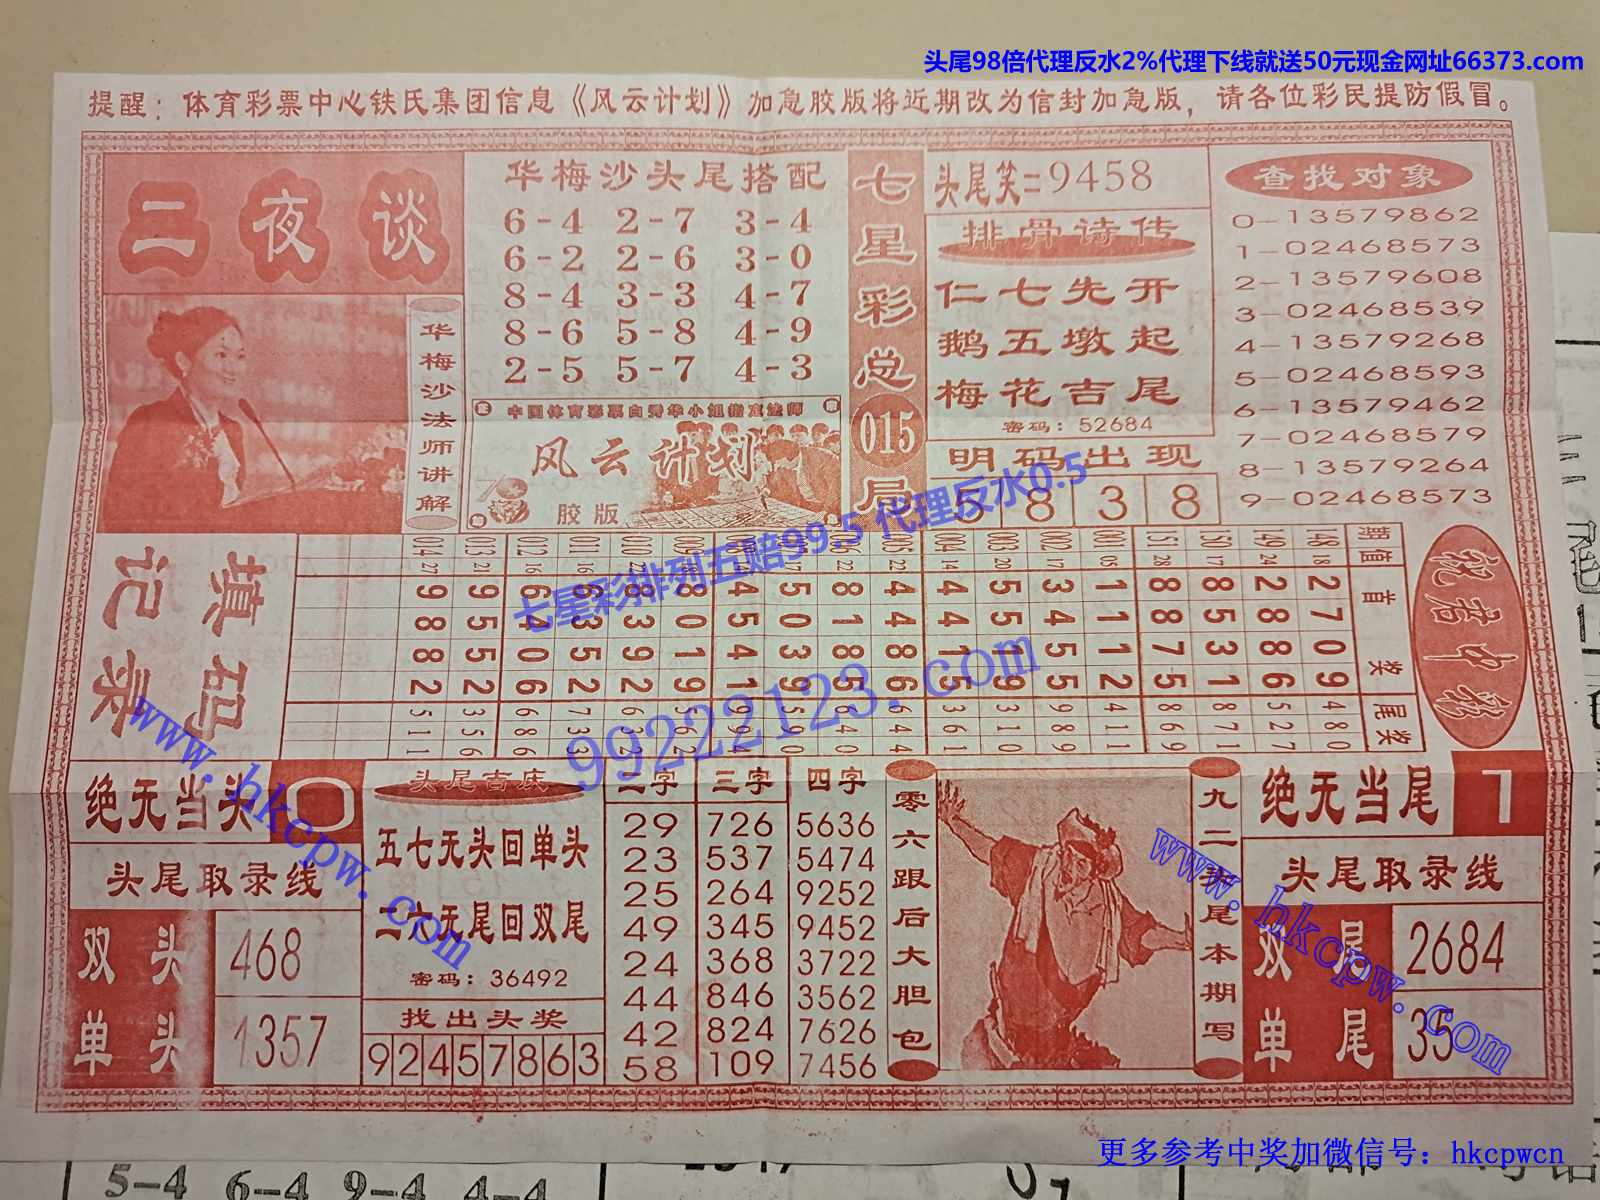 头尾98倍代理反水2%代理下线就送50元现金网址66373.com
提醒：体育彩票中心铁氏集团信息《风云计划》加急胶版将近期改为信封加急版，请各位彩民提防假冒。
二夜谈
华梅沙法师讲解
华梅沙头尾搭配
6-4 2-7 3-4
6-2 2-6 3-0
8-4 3-3 4-7
8-6 5-8 4-9
2-5 5-7 4-3
风云计划
胶版
七星彩总015局
头尾笑=9458
排骨诗传
仁七先开
鹅五墩起
梅花吉尾
密码：52684
明码出现
5 8 3 8
查找对象
0-13579862
1-02468573
2-13579608
3-02468539
4-13579268
5-02468593
6-13579462
7-02468579
8-13579264
9-02468573
七星彩排列五赔99.5 代理反水0.5
99222123.com
填码记录
期 值 首奖 尾奖
148 18 2709 480
149 24 2886 527
150 17 8531 871
151 28 8875 869
001 05 1112 411
002 17 3455 989
003 20 5519 310
004 14 4415 361
祝君中奖
绝无当头 0
头尾取录线
双头 468
单头 1357
头尾吉庆
五七无头回单头
二六无尾回双尾
密码：36492
找出头奖
92457863
二字 三字 四字
29 726 5636
23 537 5474
25 264 9252
49 345 9452
24 368 3722
44 846 3562
42 824 7626
58 109 7456
零六跟后大胆包
九二头尾本期写
绝无当尾 1
头尾取录线
双尾 2684
单尾 35
www.hkcpw.com
www.hkcpw.com
更多参考中奖加微信号：hkcpwcn
5-4 6-4 9-4 4-4